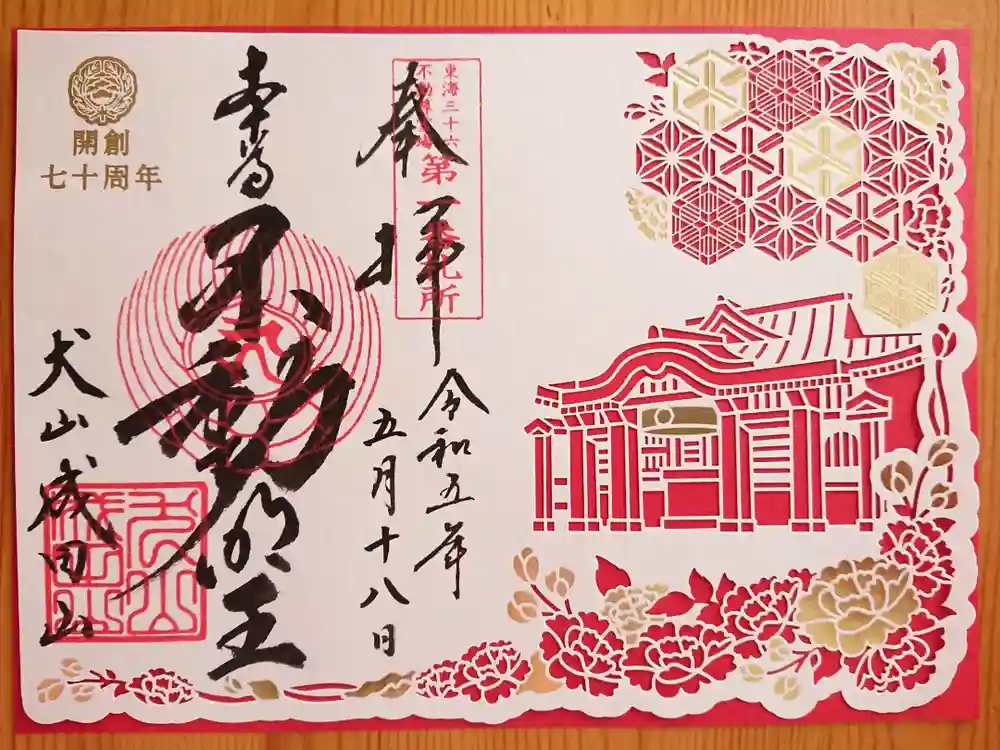 奉拝
令和五年
五月十八日
東海三十六
不動尊霊場
第一番札所
本尊
不動明王
犬山成田山
開創
七十周年